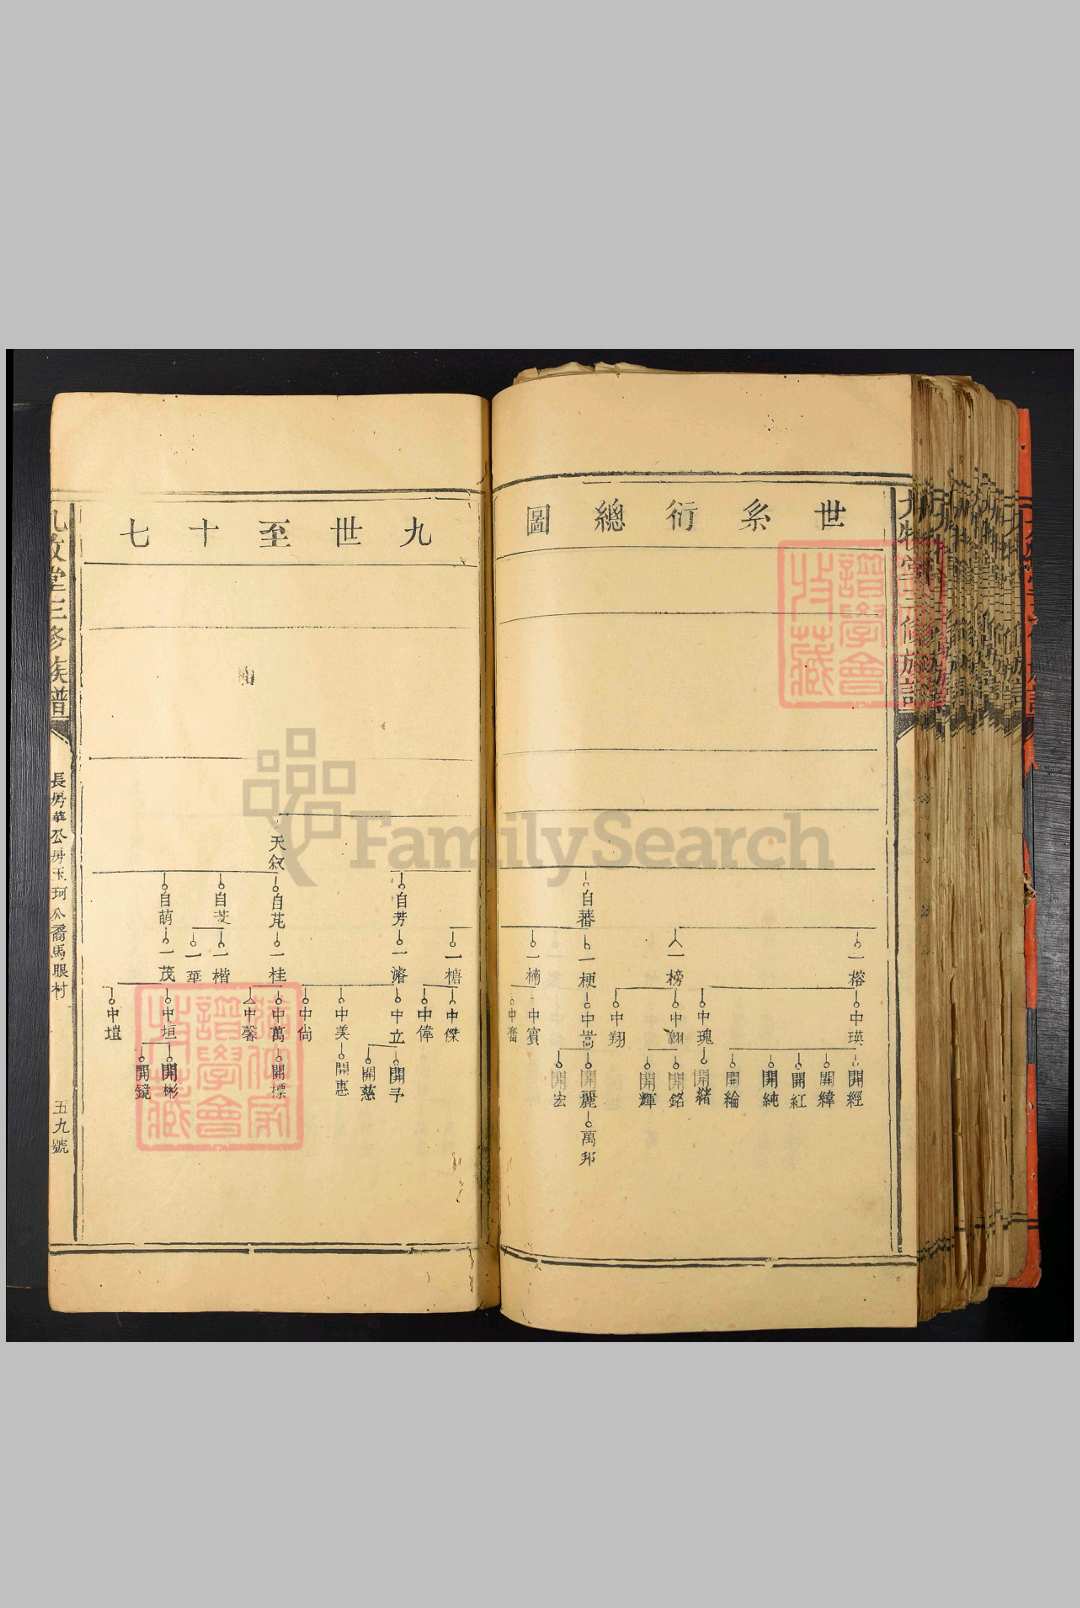 世系衍總圖
自蕃
一榕 一榜 一梗 一楠
中瑛 中瑰 中翱 中翔 中嵩 中賓 中奮
開經 開緯 開紅 開純 開綸 開緒 開銘 開輝 開麗 開宏
萬邦
九世至十七
天敘
自芳 自芃 自芰 自萌
一槠 一溶 一桂 一楷 一華 一茂
中傑 中偉 中立 中美 中尚 中萬 中馨 中垣 中塏
開子 開慈 開惠 開標 開彬 開鏡
九牧堂三修族譜
長房華公房玉珂公裔馬眼村
五九號
譜學會
收藏
FamilySearch